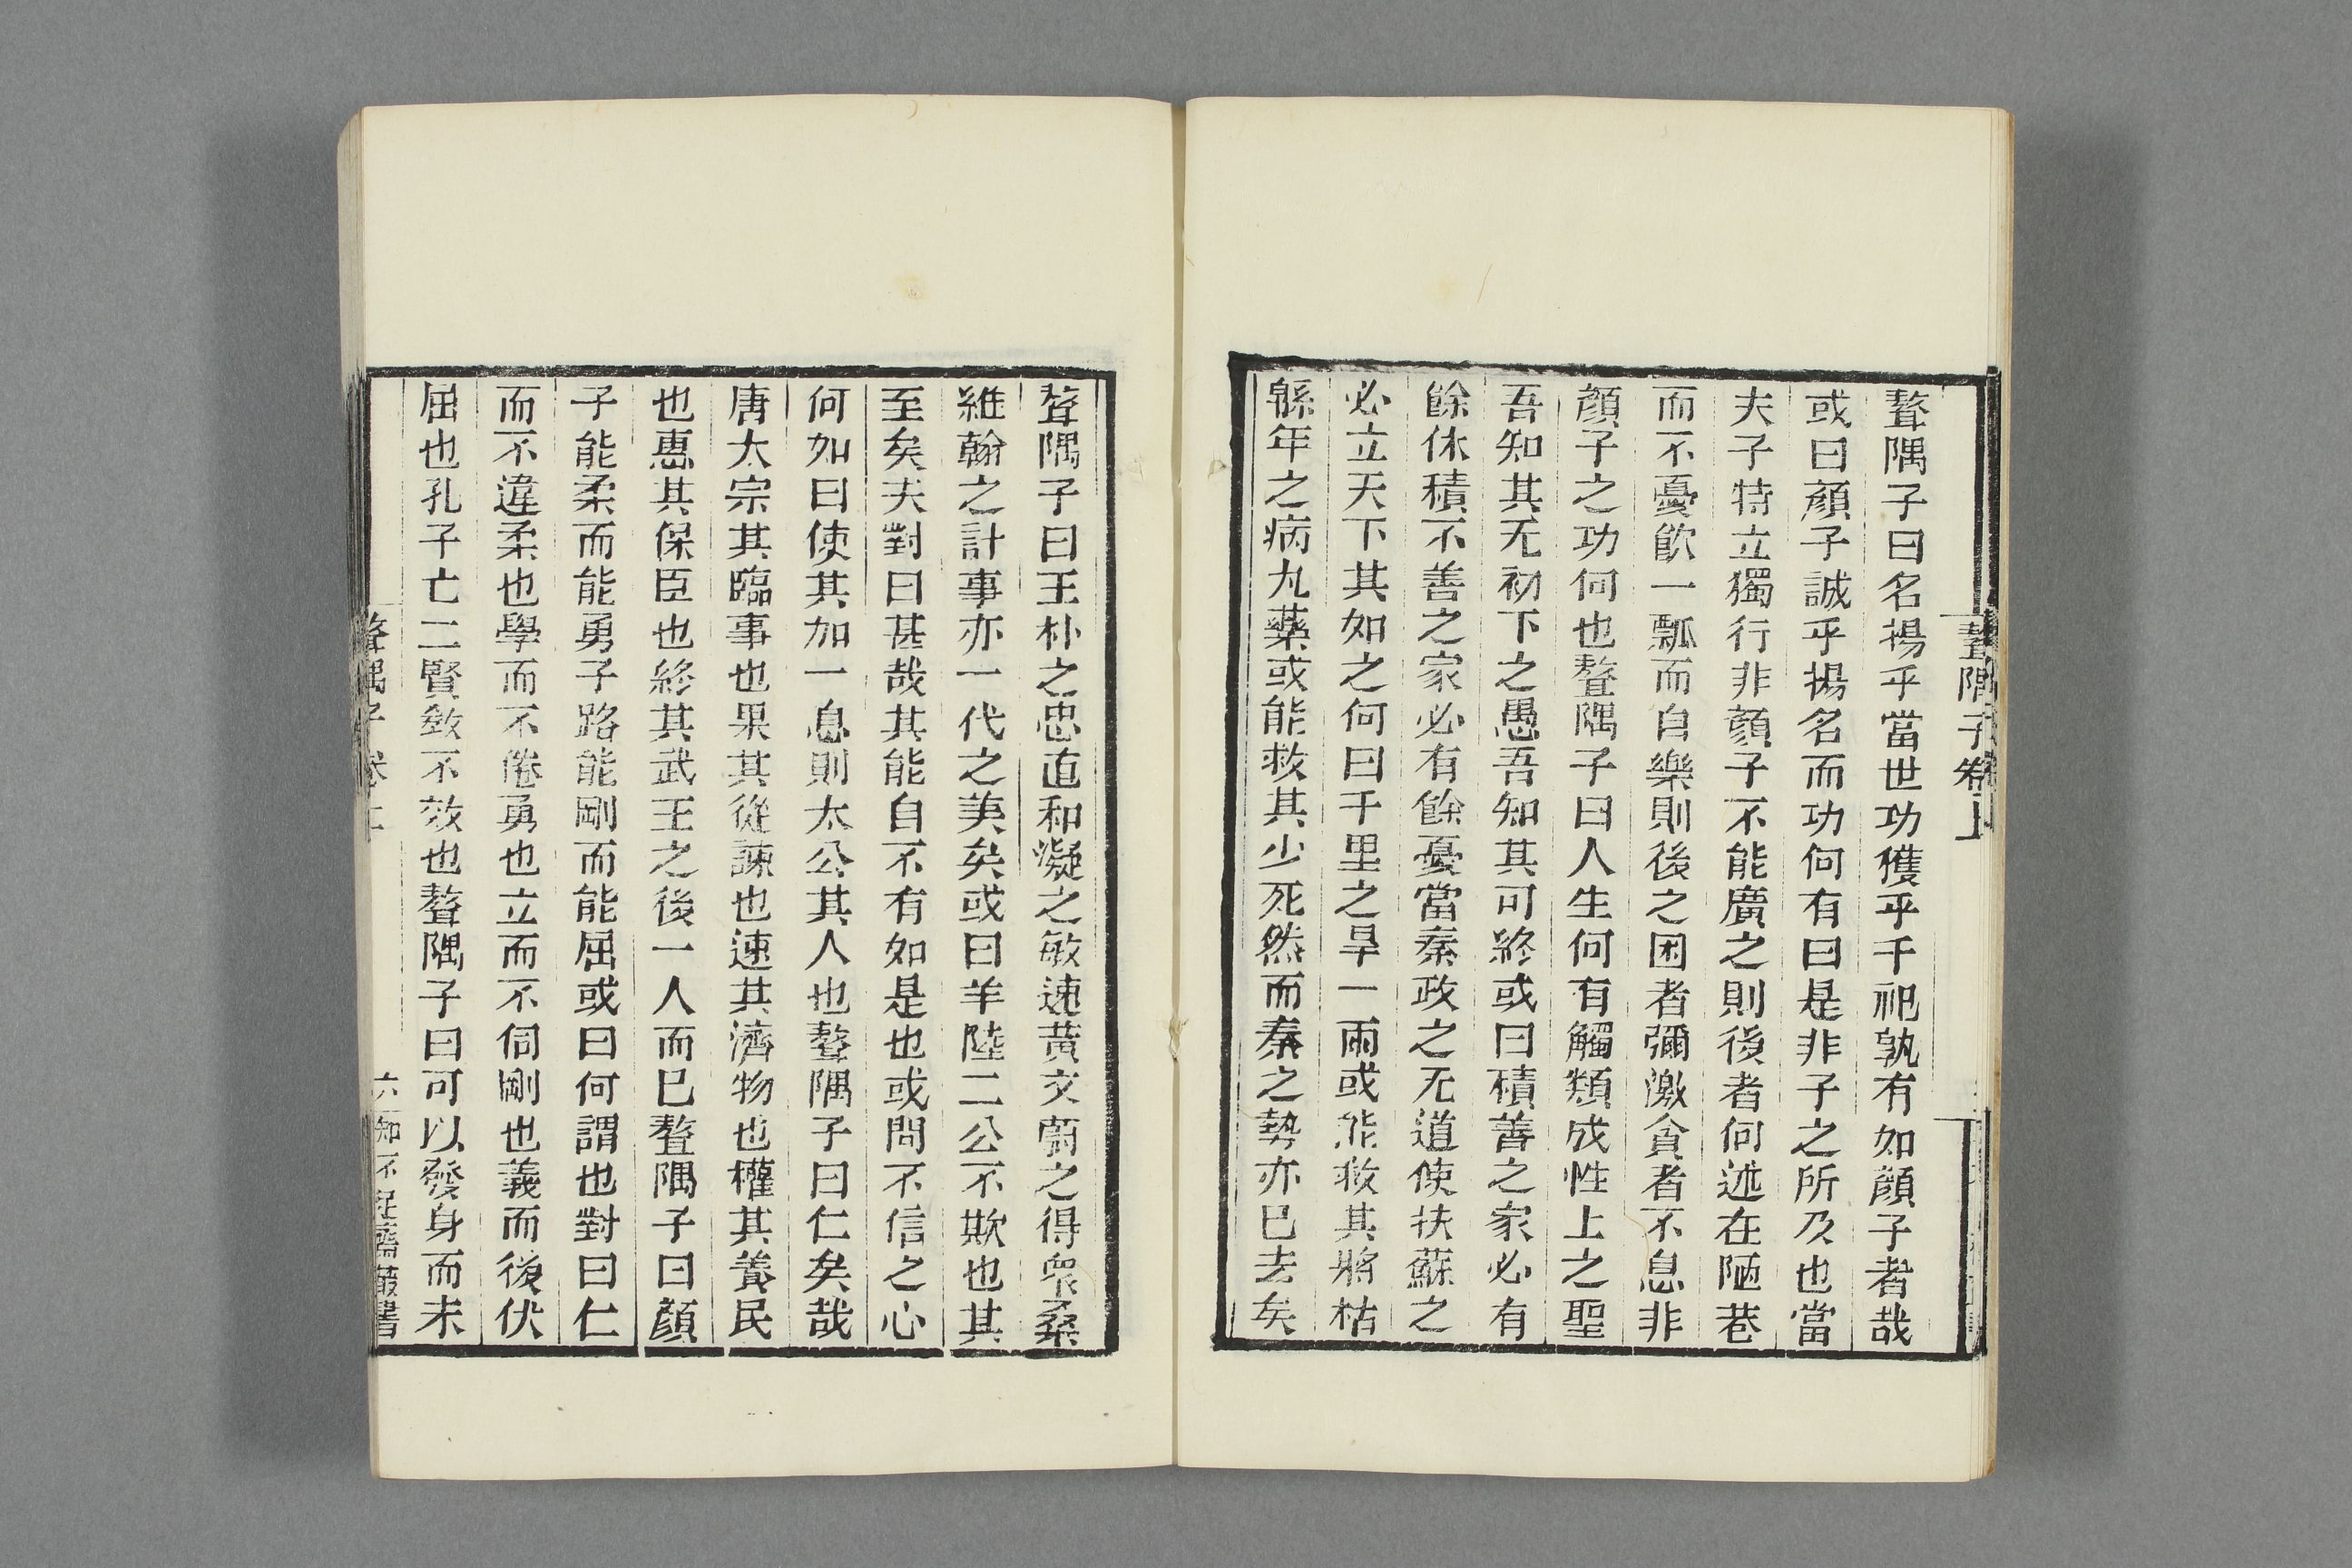 聱隅子卷上
聱隅子曰名揚乎當世功獲乎千祀孰有如顏子者哉
或曰顏子誠乎揚名而功何有曰是非子之所及也當
夫子特立獨行非顏子不能廣之則後者何述在陋巷
而不憂飮一瓢而自樂則後之困者彌激貪者不息非
顏子之功何也聱隅子曰人生何有觸類成性上之聖
吾知其无初下之愚吾知其可終或曰積善之家必有
餘休積不善之家必有餘憂當秦政之无道使扶蘇之
必立天下其如之何曰千里之旱一雨或能救其將枯
緜年之病九藥或能救其少死然而秦之勢亦已去矣
聱隅子曰王朴之忠直和凝之敏速黃文蔚之得衆桑
維翰之計事亦一代之美矣或曰羊陸二公不欺也其
至矣夫對曰甚哉其能自不有如是也或問不信之心
何如曰使其加一息則太公其人也聱隅子曰仁矣哉
唐太宗其臨事也果其從諫也速其濟物也權其養民
也惠其保臣也終其武王之後一人而已聱隅子曰顏
子能柔而能勇子路能剛而能屈或曰何謂也對曰仁
而不違柔也學而不倦勇也立而不伺剛也義而後伏
屈也孔子亡二賢敛不效也聱隅子曰可以發身而未
聱隅子卷上
六
知不足齋叢書